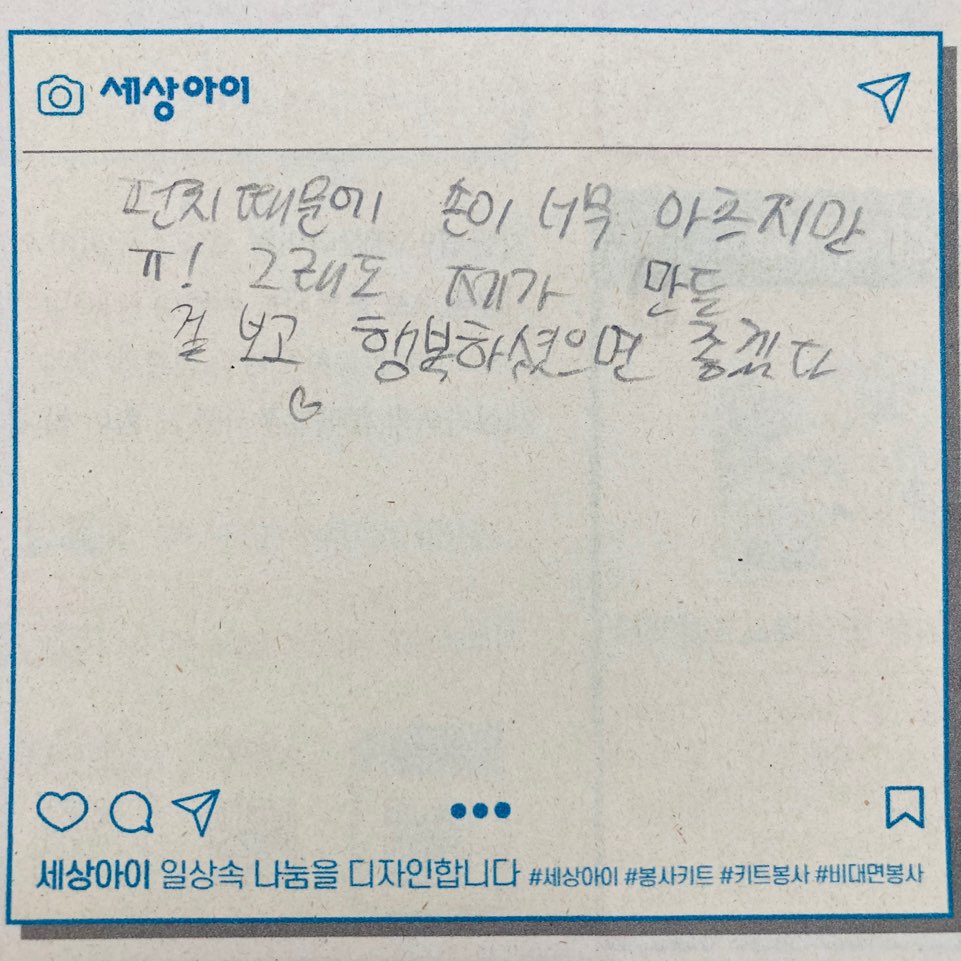 세상아이
펀치때문에 손이 너무 아프지만
ㅠ! 그래도 제가 만들
걸 보고 행복하셨으면 좋겠다
세상아이 일상속 나눔을 디자인합니다 #세상아이 #봉사키트 #키트봉사 #비대면봉사